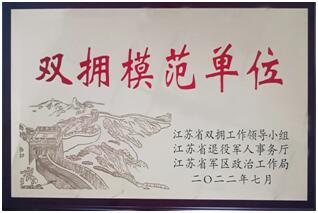 双拥模范单位
江苏省双拥工作领导小组
江苏省退役军人事务厅
江苏省军区政治工作局
二〇二二年七月